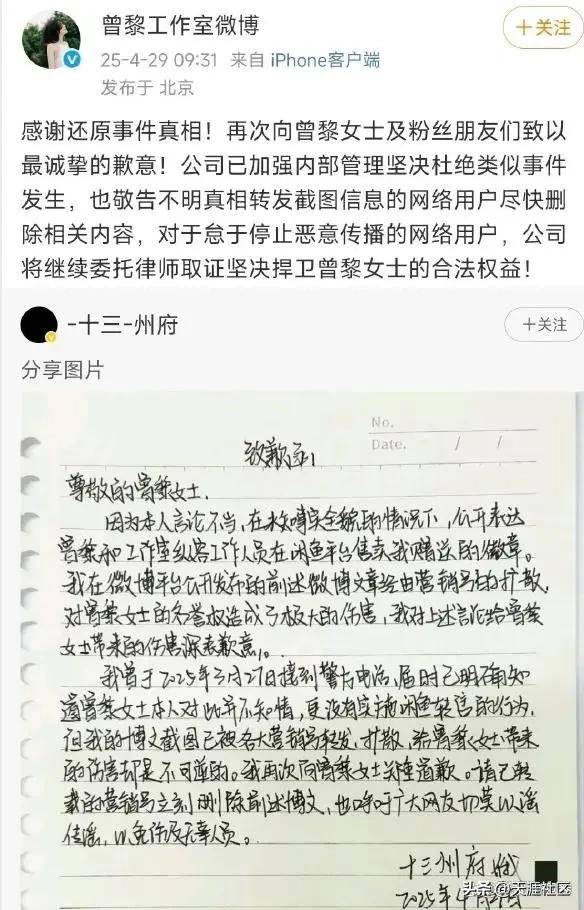 曾黎工作室微博
+关注
25-4-29 09:31 来自 iPhone客户端
发布于 北京
感谢还原事件真相！再次向曾黎女士及粉丝朋友们致以
最诚挚的歉意！公司已加强内部管理坚决杜绝类似事件
发生，也敬告不明真相转发截图信息的网络用户尽快删
除相关内容，对于怠于停止恶意传播的网络用户，公司
将继续委托律师取证坚决捍卫曾黎女士的合法权益！
-十三-州府
+关注
分享图片
No.
Date. / /
致歉函
尊敬的曾黎女士，
因为本人言论不当，在未明事实全貌的情况下，公开表达
曾黎和工作室纵容工作人员在闲鱼平台售卖我赠送的徽章。
我在微博平台公开发布的前述微博文章经由营销号的扩散，
对曾黎女士的名誉权造成了极大的伤害，我对上述言论给曾黎
女士带来的伤害深表歉意。
我曾于2025年3月27日接到警方电话，届时已明确知
道曾黎女士本人对此并不知情，更没有实施闲鱼转售的行为，
但我的博文截图已被各大营销号转发，扩散，给曾黎女士带来
的伤害却是不可逆的。我再次向曾黎女士郑重道歉。请已转
载的营销号立刻删除前述博文，也呼吁广大网友切莫以谣
传谣，以免伤及无辜人员。
十三州府
2025年4月
头条 @天涯社区